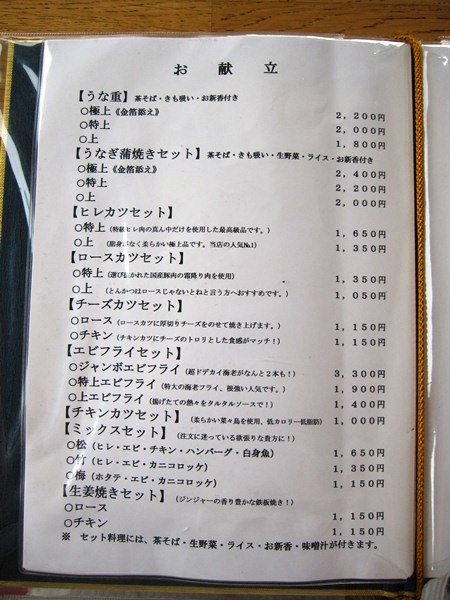 お献立
【うな重】茶そば・きも吸い・お新香付き
○極上《金箔添え》 2,200円
○特上 2,000円
○上 1,800円
【うなぎ蒲焼きセット】茶そば・きも吸い・生野菜・ライス・お新香付き
○極上《金箔添え》 2,400円
○特上 2,200円
○上 2,000円
【ヒレカツセット】
○特上(特級ヒレ肉の真ん中だけを使用した最高級品です。) 1,650円
○上(脂身がなく柔らかい極上品です。当店の人気№1) 1,350円
【ロースカツセット】
○特上(選び抜かれた国産豚肉の霜降り肉を使用) 1,350円
○上(とんかつはロースじゃないとねと言う方へおすすめです。) 1,050円
【チーズカツセット】
○ロース(ロースカツに厚切りチーズをのせて焼き上げます。) 1,150円
○チキン(チキンカツにチーズのトロリとした食感がマッチ!) 1,150円
【エビフライセット】
○ジャンボエビフライ(超ドデカイ海老がなんと2本も!) 3,300円
○特上エビフライ(特大の海老フライ、根強い人気です。) 1,900円
○上エビフライ(揚げたての熱々をタルタルソースで!) 1,400円
【チキンカツセット】(柔らかい菜々鳥を使用、低カロリー低脂肪) 1,000円
【ミックスセット】(注文に迷っている欲張りな貴方に!)
○松(ヒレ・エビ・チキン・ハンバーグ・白身魚) 1,650円
○竹(ヒレ・エビ・カニコロッケ) 1,350円
○梅(ホタテ・エビ・カニコロッケ) 1,150円
【生姜焼きセット】(ジンジャーの香り豊かな鉄板焼き!)
○ロース 1,150円
○チキン 1,150円
※ セット料理には、茶そば・生野菜・ライス・お新香・味噌汁が付きます。